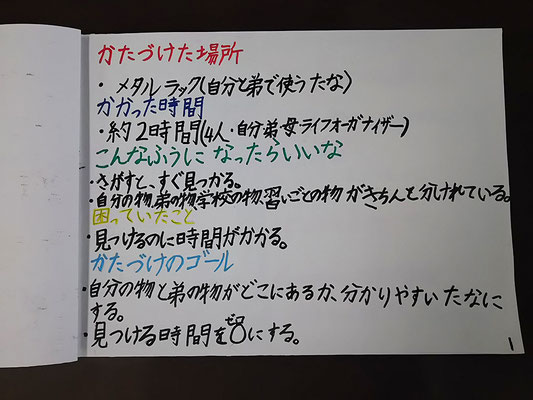 かたづけた場所
・メタルラック(自分と弟で使うたな)
かかった時間
・約2時間(4人・自分・弟・母・ライフオーガナイザー)
こんなふうになったらいいな
・さがすと、すぐ見つかる。
・自分の物、弟の物、学校の物、習いごとの物がきちんと分けれている。
困っていたこと
・見つけるのに時間がかかる。
かたづけのゴール
・自分の物と弟の物がどこにあるか、分かりやすいたなに
する。
・見つける時間を0にする。
ゼロ
1